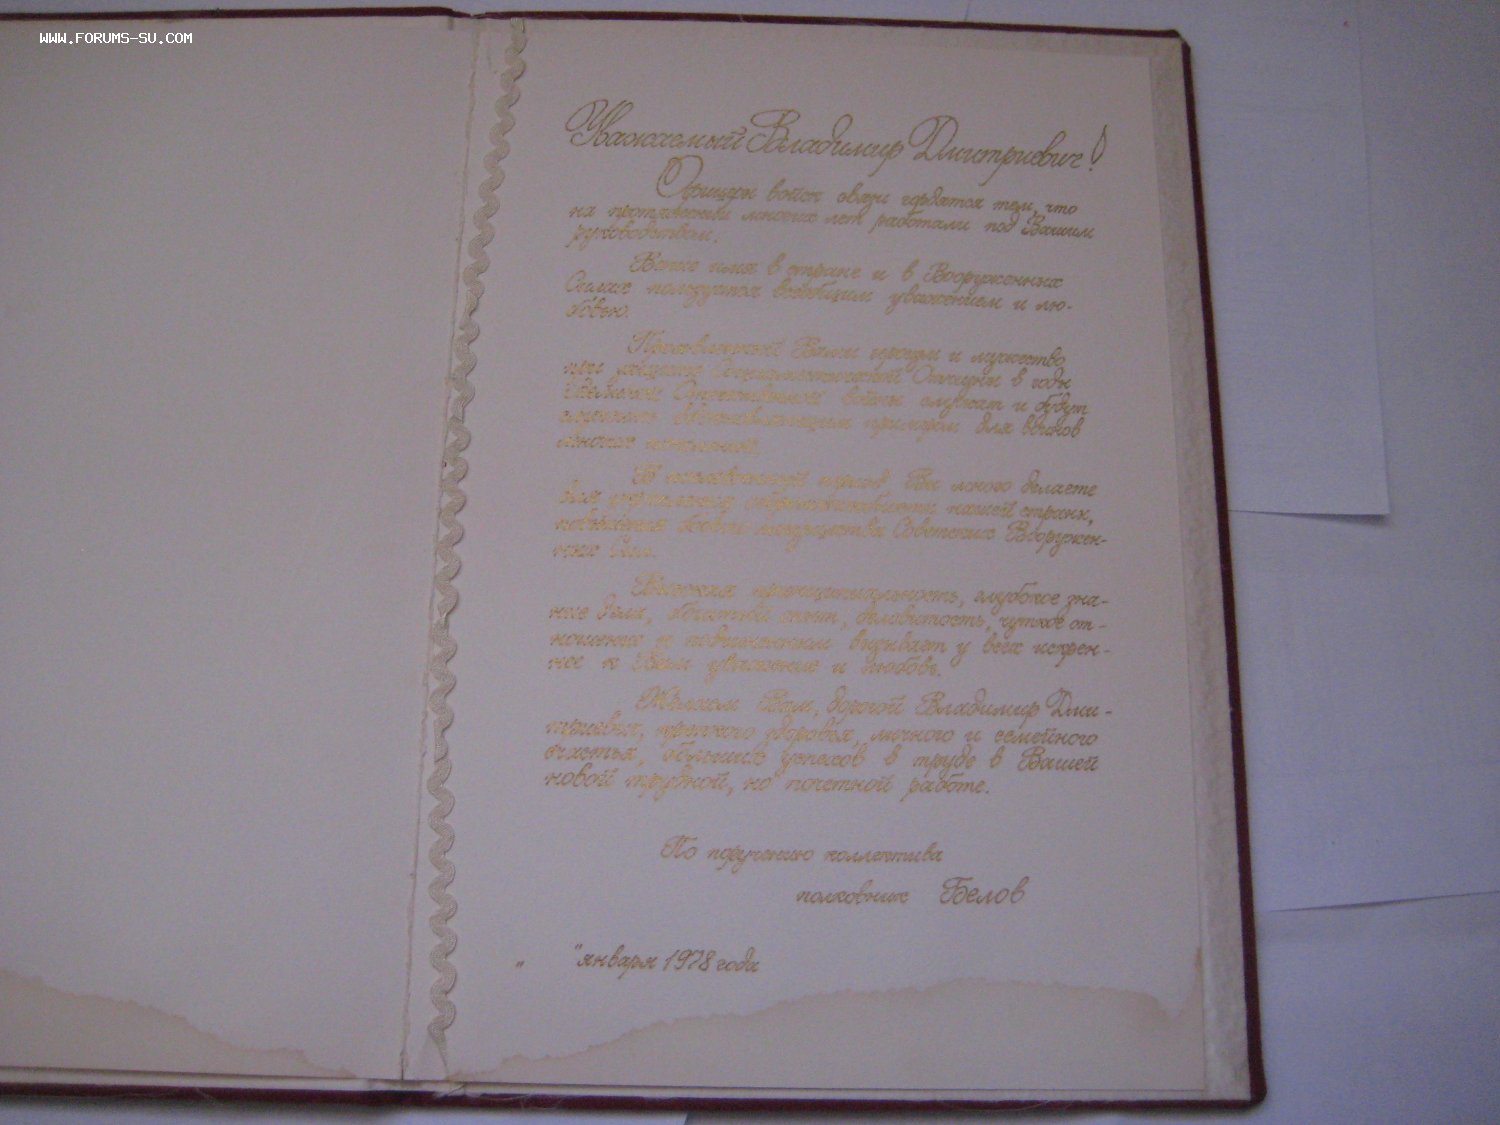 WWW.FORUMS-SU.COM
Уважаемый Владимир Дмитриевич!
Офицеры войск связи гордятся тем, что
на протяжении многих лет работали под Вашим
руководством.
Ваше имя в стране и в Вооруженных
Силах пользуется всеобщим уважением и лю-
бовью.
Проявленный Вами героизм и мужество
при защите Социалистической Отчизны в годы
Великой Отечественной войны служат и будут
служить вдохновляющим примером для воинов
многих поколений.
В послевоенный период Вы много делаете
для укрепления обороноспособности нашей страны,
повышения боевого могущества Советских Вооружен-
ных Сил.
Высокая принципиальность, глубокое зна-
ние дела, богатый опыт, деловитость, чуткое от-
ношение к подчиненным вызывает у всех искрен-
нее к Вам уважение и любовь.
Желаем Вам, дорогой Владимир Дми-
триевич, крепкого здоровья, личного и семейного
счастья, больших успехов в труде в Вашей
новой трудной, но почетной работе.
По поручению коллектива
полковник Белов
" " января 1978 года